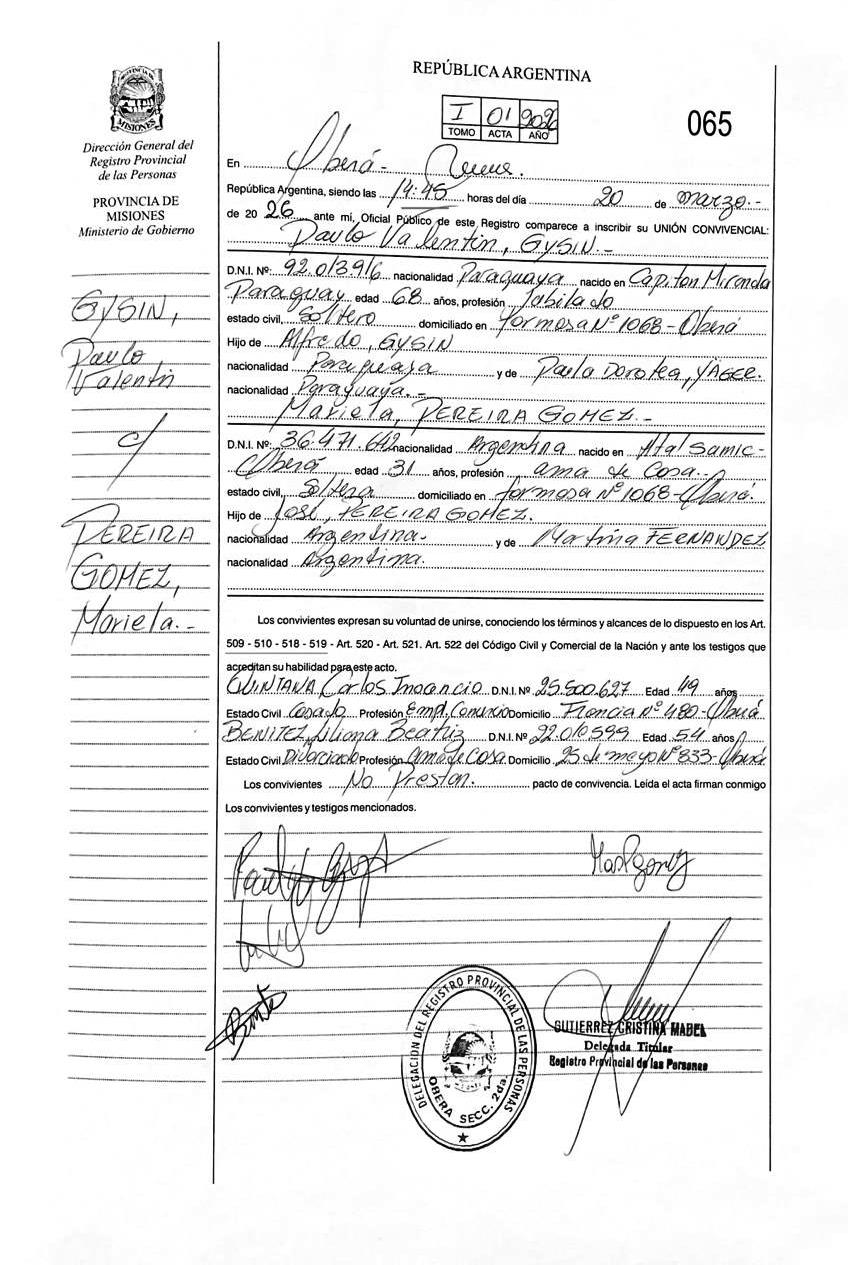 REPÚBLICA ARGENTINA
PROVINCIA DE
MISIONES
I 01 2026
TOMO ACTA AÑO
065
Dirección General del
Registro Provincial
de las Personas
PROVINCIA DE
MISIONES
Ministerio de Gobierno
GYSIN,
Paulo
Valentin
c/
PEREIRA
GOMEZ,
Mariela.-
En Oberá- Mnes.
República Argentina, siendo las 14:45 horas del día 20 de marzo.-
de 20 26 ante mi, Oficial Público de este Registro comparece a inscribir su UNIÓN CONVIVENCIAL:
Paulo Valentin, GYSIN.-
D.N.I. Nº: 92.013.916 nacionalidad Paraguaya nacido en Capitan Miranda
Paraguay edad 68 años, profesión Jubilado
estado civil, Soltero domiciliado en formosa Nº 1068-Oberá
Hijo de Alfredo, GYSIN
nacionalidad Paraguaya y de Paula Dorotea, YAGER.
nacionalidad Paraguaya.
Mariela, PEREIRA GOMEZ.-
D.N.I. Nº: 36.471.642 nacionalidad Argentina nacido en Htal Samic-
Oberá edad 31 años, profesión ama de casa.
estado civil, Soltera domiciliado en formosa Nº 1068-Oberá.
Hijo de José, PEREIRA GOMEZ.
nacionalidad Argentina- y de Martina FERNANDEZ
nacionalidad Argentina.
Los convivientes expresan su voluntad de unirse, conociendo los términos y alcances de lo dispuesto en los Art.
509 - 510 - 518 - 519 - Art. 520 - Art. 521. Art. 522 del Código Civil y Comercial de la Nación y ante los testigos que
acreditan su habilidad para este acto.
QUINTANA Carlos Inocencio D.N.I. Nº 25.500.627 Edad 49 años
Estado Civil Casado Profesión Empl. Comercio Domicilio Francia Nº 480-Oberá
BENITEZ, Liliana Beatriz D.N.I. Nº 22.010.599 Edad 54 años
Estado Civil Divorciado Profesión Ama de Casa Domicilio 25 de mayo Nº 833-Oberá
Los convivientes No Prestan. pacto de convivencia. Leída el acta firman conmigo
Los convivientes y testigos mencionados.
DELEGACION DEL REGISTRO PROVINCIAL DE LAS PERSONAS
OBERA SECC. 2da
GUTIERREZ CRISTINA MABEL
Delegada Titular
Registro Provincial de las Personas